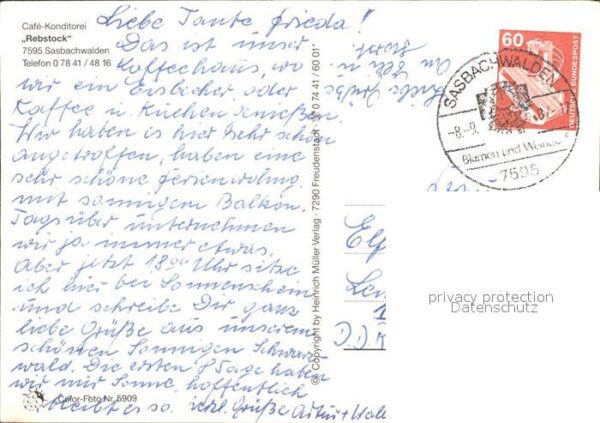 Café-Konditorei
„Rebstock"
7595 Sasbachwalden
Telefon 0 78 41 / 48 16
Liebe Tante Frieda!
Das ist unser
Kaffeehaus, wo
wir ein Eisbecher oder
Kaffee u. Kuchen genießen.
Wir haben es hier sehr schön
angetroffen, haben eine
sehr schöne Ferienwohng.
mit sonnigem Balkon.
Tags über unternehmen
wir ja immer etwas.
Aber jetzt 18 00 Uhr sitze
ich hier bei Sonnenschein
und schreibe Dir ganz
liebe Grüße aus unserem
schönen Sonnigen Schwarz
wald. Die ersten 8 Tage haben
wir mir Sonne, hoffentlich
bleibt es so. herzl. Grüße Artur +
Color-Foto Nr. 5909
© Copyright by Heinrich Müller Verlag · 7290 Freudenstadt · 0 74 41 / 60 01
60
DEUTSCHE BUNDESPOST
SASBACHWALDEN
-8.-9.
Blumen und Weindorf
7595
privacy protection
Datenschutz